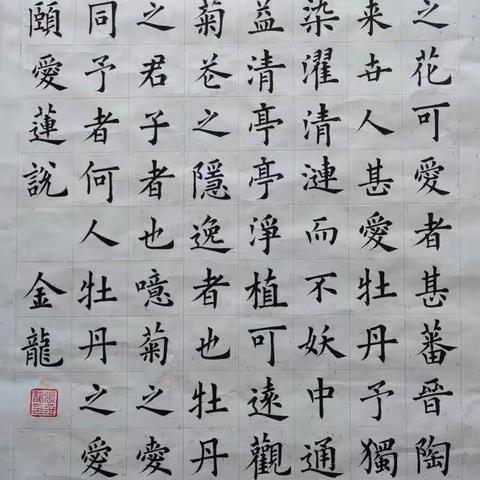 之花可愛者甚蕃晉陶
来世人甚愛牡丹予獨
染濯清漣而不妖中通
益清亭亭淨植可遠觀
菊花之隱逸者也牡丹
之君子者也噫菊之愛
同予者何人牡丹之愛
頤愛蓮說 金龍